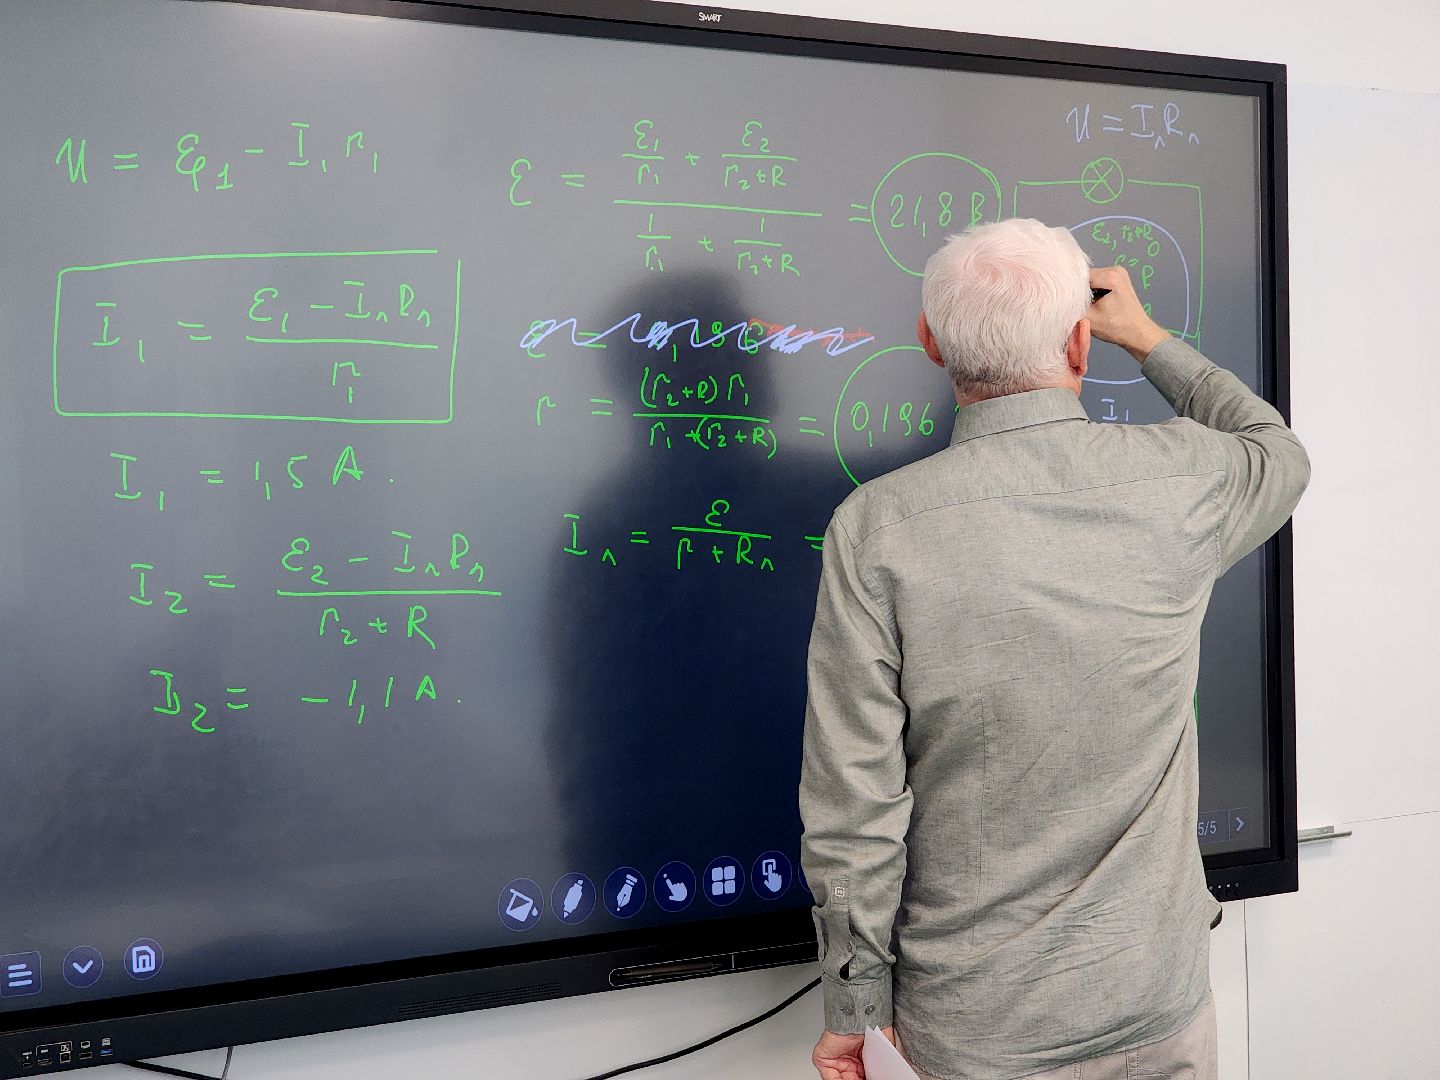 SMART
U = ℰ₁ - I₁ r₁
I₁ = (ℰ₁ - IₙRₙ) / r₁
I₁ = 1,5 A.
I₂ = (ℰ₂ - IₙRₙ) / (r₂ + R)
I₂ = -1,1 A.
ℰ = (ℰ₁/r₁ + ℰ₂/(r₂+R)) / (1/r₁ + 1/(r₂+R)) = 21,8 В
r = (r₂+R) r₁ / (r₁ + (r₂+R)) = 0,196
Iₙ = ℰ / (r + Rₙ) =
U = IₙRₙ
ℰ₂, r₂+R
I₁
5/5